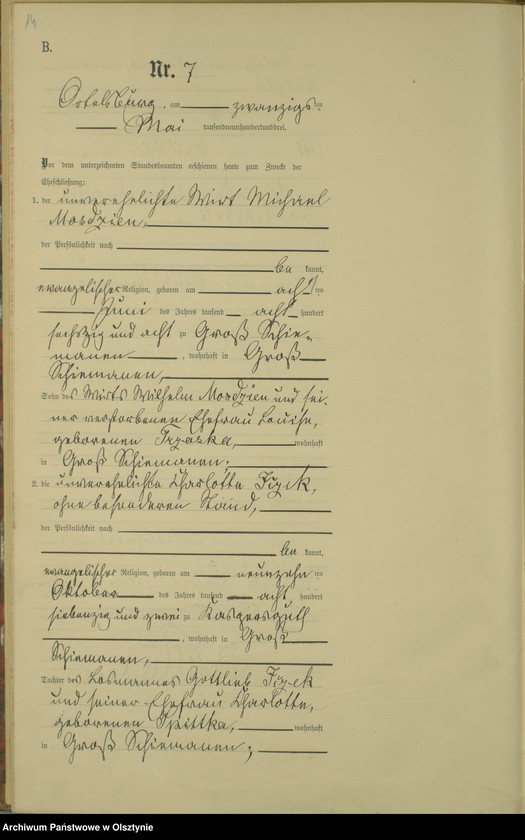 14
B.
Nr. 7
Ortelsburg, am zwanzigsten
Mai tausendneunhundertunddrei.
Vor dem unterzeichneten Standesbeamten erschienen heute zum Zwecke der
Eheschließung:
1. der unverehelichte Wirt Michael
Mosdzien,
der Persönlichkeit nach
be kannt,
evangelischer Religion, geboren am achten
Juni des Jahres tausend acht hundert
sechszig und acht zu Groß Schie-
manen, wohnhaft in Groß
Schiemanen,
Sohn des Wirts Wilhelm Mosdzien und sei-
ner verstorbenen Ehefrau Louise,
geborenen Trzaska, wohnhaft
in Groß Schiemanen;
2. die unverehelichte Charlotte
ohne besonderen Stand,
der Persönlichkeit nach
be kannt,
evangelischer Religion, geboren am neunzehnten
Oktober des Jahres tausend acht hundert
siebenzig und zwei zu Kaspersguth
, wohnhaft in Groß
Schiemanen,
Tochter des Losmannes Gottlieb
und seiner Ehefrau Charlotte,
geborenen wohnhaft
in Groß Schiemanen;
Archiwum Państwowe w Olsztynie